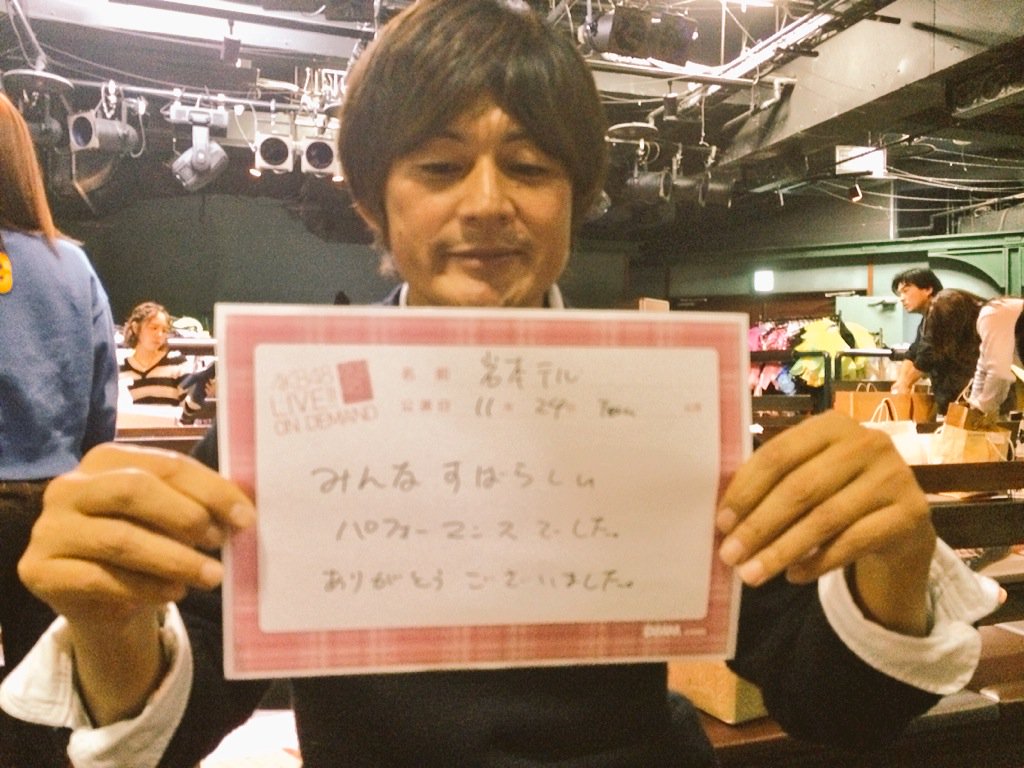 AKB48
LIVE!!
ON DEMAND
名前 岩本テル
公演日 11月 29日
みんなすばらしい
パフォーマンスでした。
ありがとうございました。
DMM.com